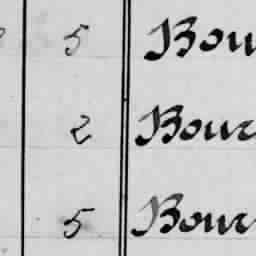 5 Bou
2 Bour
5 Bour